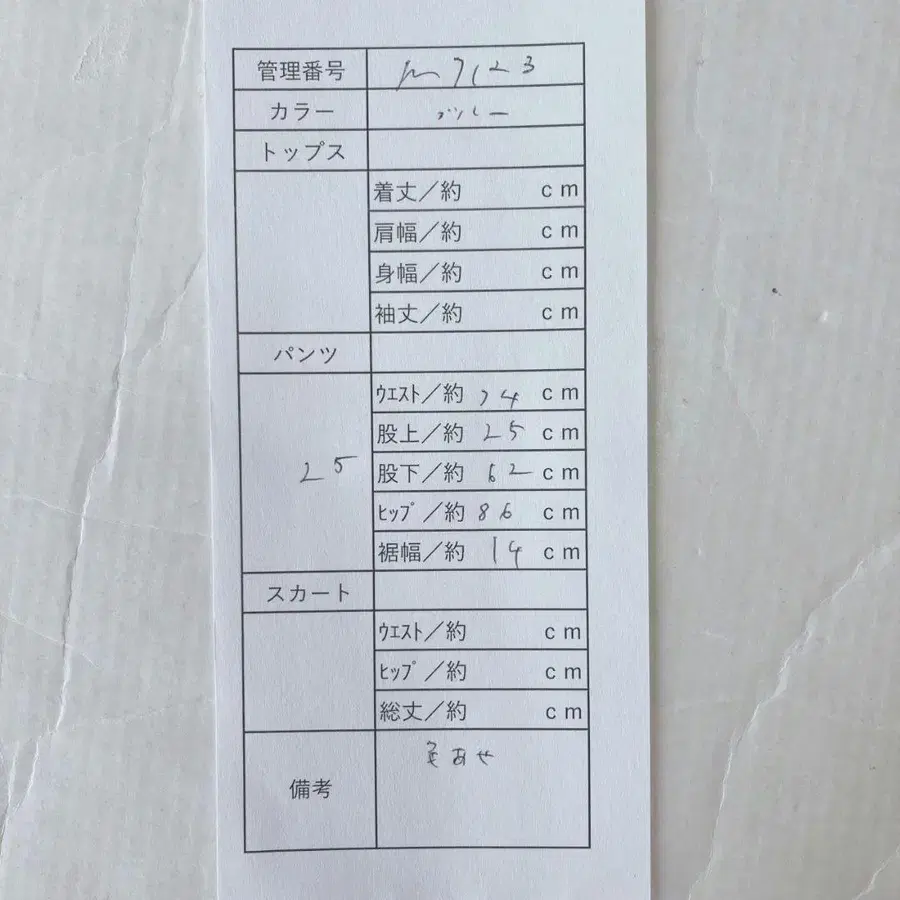 管理番号 m7123
カラー ブルー
トップス
着丈／約 cm
肩幅／約 cm
身幅／約 cm
袖丈／約 cm
パンツ
25
ｳｴｽﾄ／約 74 cm
股上／約 25 cm
股下／約 62 cm
ﾋｯﾌﾟ／約 86 cm
裾幅／約 14 cm
スカート
ｳｴｽﾄ／約 cm
ﾋｯﾌﾟ／約 cm
総丈／約 cm
備考 色あせ